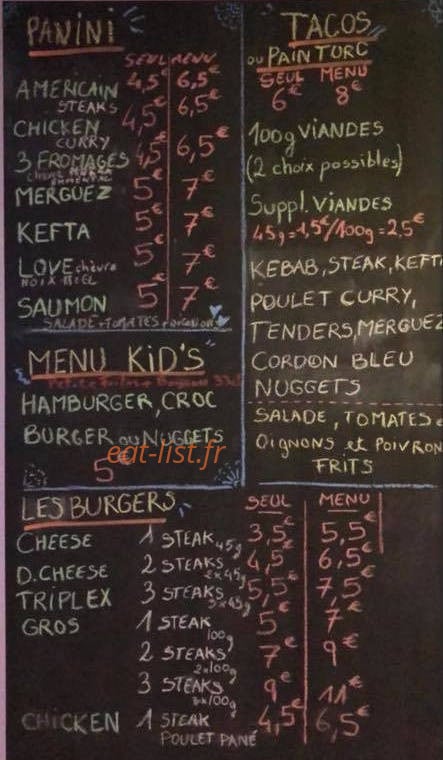 PANINI
SEUL MENU
AMERICAIN 4,5€ 6,5€
STEAKS
CHICKEN 4,5€ 6,5€
CURRY
3 FROMAGES 4,5€ 6,5€
MERGUEZ 5€ 7€
KEFTA 5€ 7€
LOVE chèvre 5€ 7€
NOIX MIEL
SAUMON 5€ 7€
SALADE + TOMATES + OIGNONS
MENU KID'S
HAMBURGER, CROC
BURGER ou NUGGETS
eat-list.fr
5€
TACOS
ou PAIN TURC
SEUL MENU
6€ 8€
100g VIANDES
(2 choix possibles)
Suppl. VIANDES
45g = 1,5€/100g = 2,5€
KEBAB, STEAK, KEFTA
POULET CURRY,
TENDERS, MERGUEZ
CORDON BLEU
NUGGETS
SALADE, TOMATES
Oignons et POIVRON
FRITS
LES BURGERS SEUL MENU
CHEESE 1 STEAK 45g 3,5€ 5,5€
D.CHEESE 2 STEAKS 2x45g 4,5€ 6,5€
TRIPLEX 3 STEAKS 3x45g 5,5€ 7,5€
GROS 1 STEAK 100g 5€ 7€
2 STEAKS 2x100g 7€ 9€
3 STEAKS 3x100g 9€ 11€
CHICKEN 1 STEAK 4,5€ 6,5€
POULET PANÉ